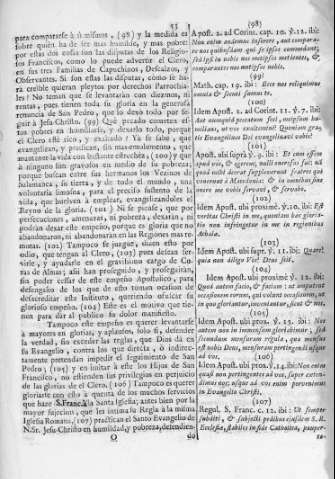 53
para compararse à sì mismos, (98) y la medida es
sobre quien ha de ser mas humilde, y mas pobre:
por estas dos cosas son las disputas de los Religio-
sos Franciscos, como lo puede advertir el Clero,
en sus tres Familias de Capuchinos, Descalzos, y
Observantes. Si son estas las disputas, cómo se ha-
ra creible quieran pleytos por derechos Parrochia-
les? No teman que se levantarán con diezmos, ni
rentas, pues tienen toda su gloria en la generosa
renuncia de San Pedro, que lo dexò todo por se-
guir à Jesu-Christo. (99) Què pecado cometen es-
tos pobres en humillarse, y dexarlo todo, porque
el Clero esté rico, y exaltado? Ya se sabe, que
evangelizan, y practican, sin mas emolumento, que
mantener la vida con bastante estrechèz, (100) y que
à ninguno son gravosos en medio de la pobreza;
porque buscan entre sus hermanos los Vezinos de
Salamanca, su tierra, y de todo el mundo, una
voluntaria limosna, para el preciso sustento de la
vida, que huelven à emplear, evangelizandoles el
Reyno de la gloria. (101) Ni se piense, que por
persecuciones, amenazas, ni pobreza, dexarán, ni
podrán dexar este empeño, porque es gloria que no
abandonaron, ni abandonarán en las Regiones del mun-
do. (102) Tampoco se juzgue, dicen esto por
odio, que tengan al Clero, (103) pues desean ser-
virle, y ayudarle en el gravissimo cargo de Cu-
ras de Almas; assi han proseguido, y proseguirán,
sin poder cessar de este empeño Apostolico, para
defenderse de los que de esto toman ocasion de
desacreditar este Instituto, queriendo ofuscar su
glorioso empeño. (104) Este es el motivo que tie-
nen para dár al publico su dolor manifiesto.
Tampoco este empeño es querer levantarse
à mayores en glorias, y aplausos, solo si, defender
la verdad, sin exceder las reglas, que Dios dà en
su Evangelio, contra los que directa, ò indirecta-
mente pretenden impedir el seguimiento de San
Pedro, (105) y en imitar à este los Hijos de San
Francisco, no estienden sus privilegios en perjuicio
de las glorias de el Clero. (106) Tampoco es querer
gloriarse con esto à quenta de los muchos servicios
que hace S.Franc.à la Santa Iglesia; antes bien por la
mayor sujecion, que les intima su Regla à la misma
Iglesia Romana, (107) practican el Santo Evangelio de
N.Sr. Jesu-Christo en humildad,y pobreza, defendien-
O
do
(98)
Apost. 2. ad Corint. cap. 10. ℣. 12. ibi:
Non enim audemus inserere, aut compara-
re nos quibusdam qui se ipsos commendant;
sed ipsi in nobis nos metipsos metientes, &
comparantes nos metipsos nobis.
(99)
Math. cap. 19. ibi: Ecce nos reliquimus
omnia & secuti sumus te.
(100)
Idem Apost. 2. ad Corint. 11. ℣. 7. ibi:
Aut numquid peccatum feci, meipsum hu-
milians, ut vos exaltemini? Quoniam gra-
tis Evangelium Dei evangelizavi vobis?
(101)
Apost. ubi suprà ℣. 9. ibi: Et cum essem
apud vos, & egerem, nulli onerosus fui: nã
quod mihi deerat suppleverunt fratres qui
venerunt à Macedonia: & in omnibus sine
onere me vobis servavi, & servabo.
(102)
Idem Apost. ubi prox. ℣. 10. ibi: Est
veritas Christi in me, quoniam hæc gloria-
tio non infringetur in me in regionibus
Achaiæ.
(103)
Idem Apost. ubi supr. ℣. 11. ibi: Quare?
quia non diligo Vos? Deus scit.
(104)
Idem Apost. ubi proximè ℣. 12. ibi:
Quod autem facio, & faciam: ut amputem
occasionem eorum, qui volunt occasionem, ut
in quo gloriantur, inveniantur, sicut & nos.
(105)
Idem Apost. ubi prox. ℣. 13. ibi: Nos
autem non in immensum gloriabimur, sed
secundum mensuram regulæ, qua mensus
est nobis Deus, mensuram pertingendi usque
ad vos.
(106)
Idem Apost. ubi prox. ℣.14. ibi: Non enim
quasi non pertingentes ad vos, super exten-
dimus nos: usque ad vos enim pervenimus
in Evangelio Christi.
(107)
Regul. S. Franc. c. 12. ibi: Ut semper
subditi, & subjecti pedibus ejusdem S. R.
Ecclesiæ, stabiles in fide Catholica, pauper-
ta-